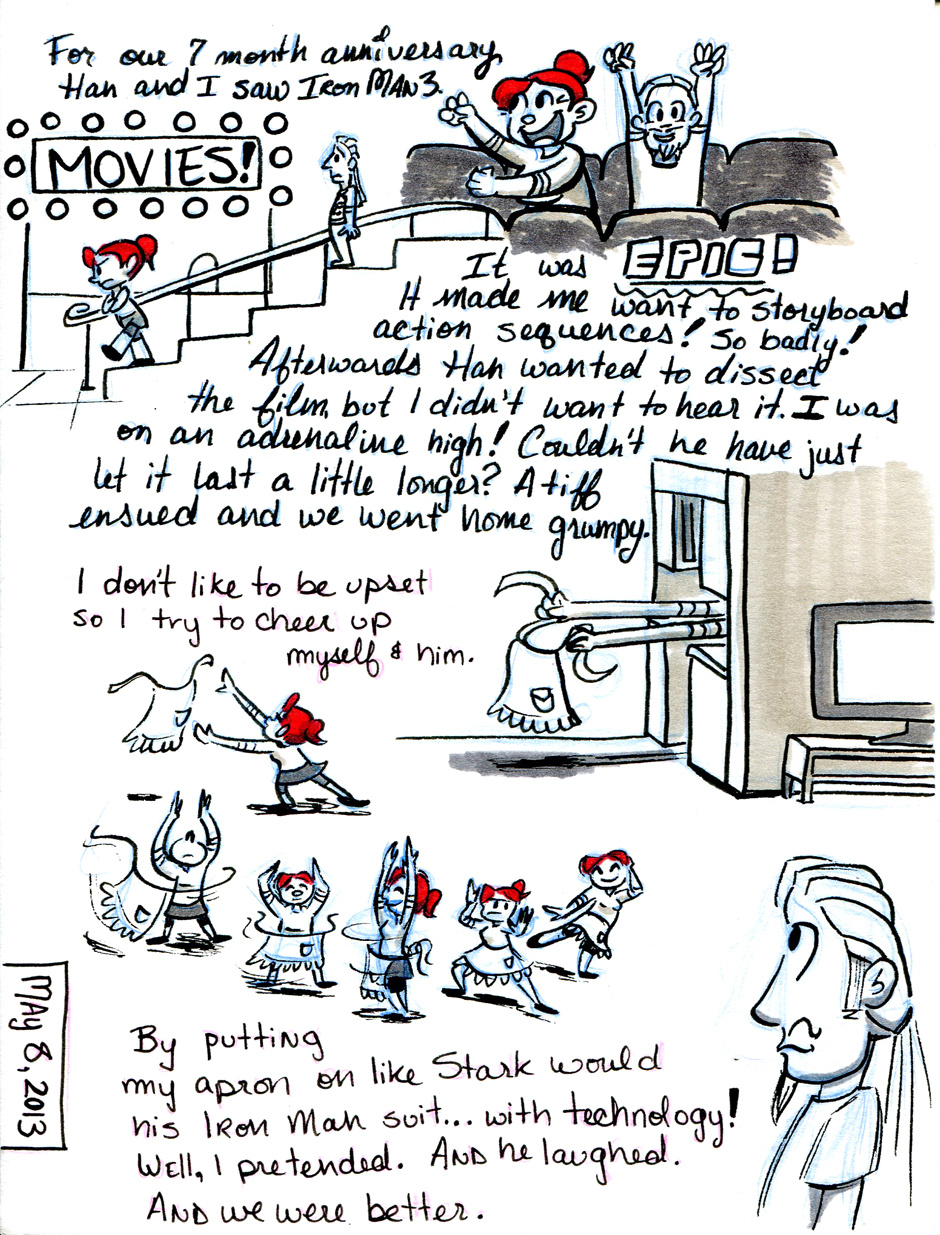 For our 7 month anniversary,
Han and I saw Iron MAN 3.
MOVIES!
It was EPIC!
It made me want to storyboard
action sequences! So badly!
Afterwards Han wanted to dissect
the film, but I didn't want to hear it. I was
on an adrenaline high! Couldn't he have just
let it last a little longer? A tiff
ensued and we went home grumpy.
I don't like to be upset
so I try to cheer up
myself & him.
By putting
my apron on like Stark would
his Iron Man suit... with technology!
Well, I pretended. AND he laughed.
AND we were better.
MAy 8, 2013